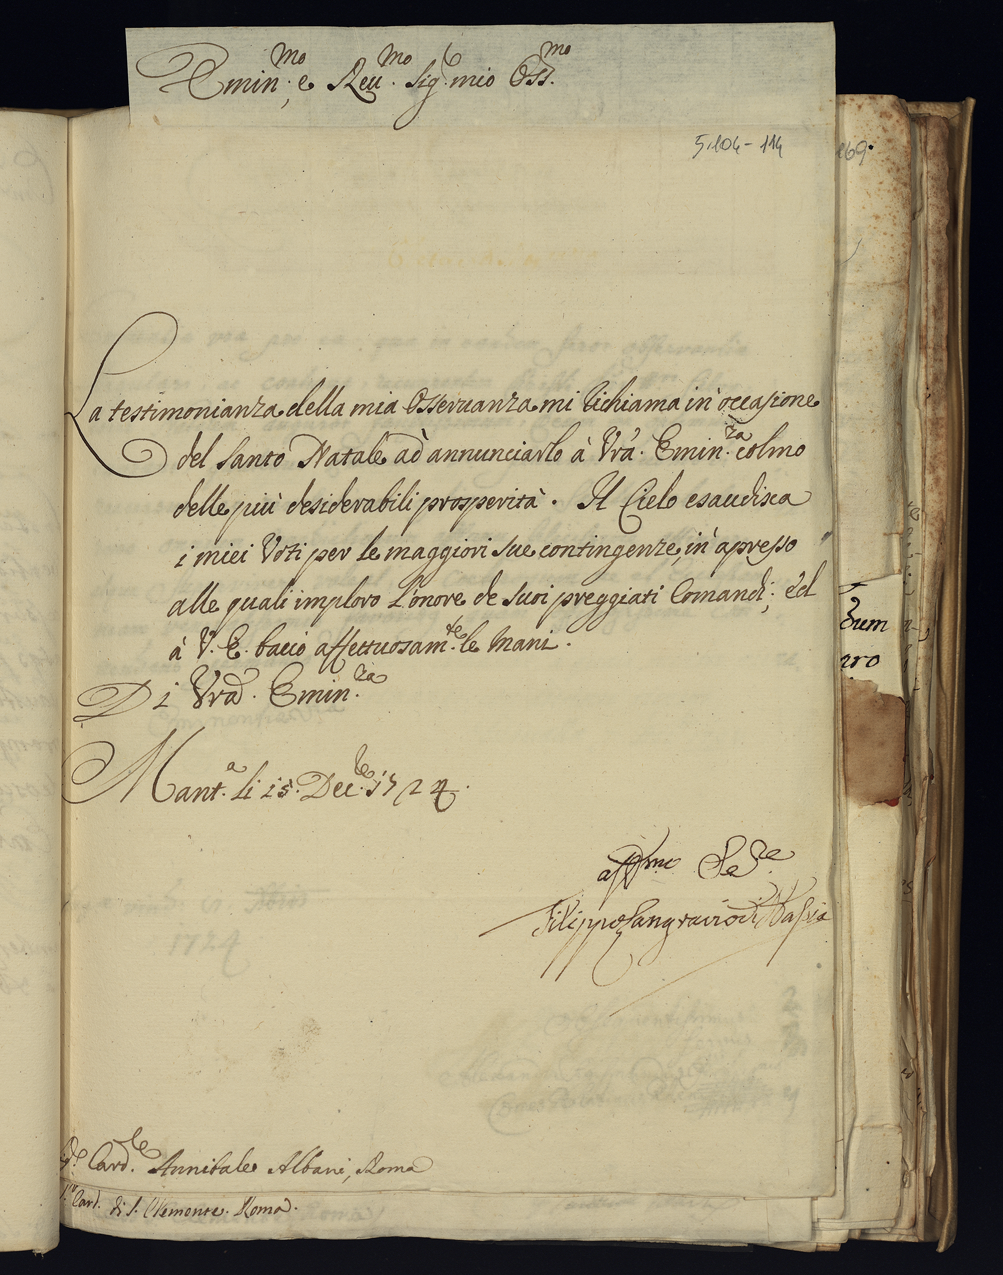 Emin.mo e Reu.mo Sig.r mio Oss.mo
5.104-114
169.
La testimonianza della mia Osseruanza mi richiama in occasione
del Santo Natale ad annunciarlo à Vra. Emin.za colmo
delle più desiderabili prosperità. Il Cielo esaudisca
i miei Voti per le maggiori sue contingenze, in apresso
alle quali imploro l'onore de suoi preggiati Comandi; ed
à V. E. bacio affettuosam.te le Mani.
Di Vra. Emin.za
Mant.a li 15. Dec.bre 1724.
aff.mo Se.re
Filippo Langravio di Hassia
S.r Card.le Annibale Albani, Roma
S.r Card. di S. Clemente. Roma.